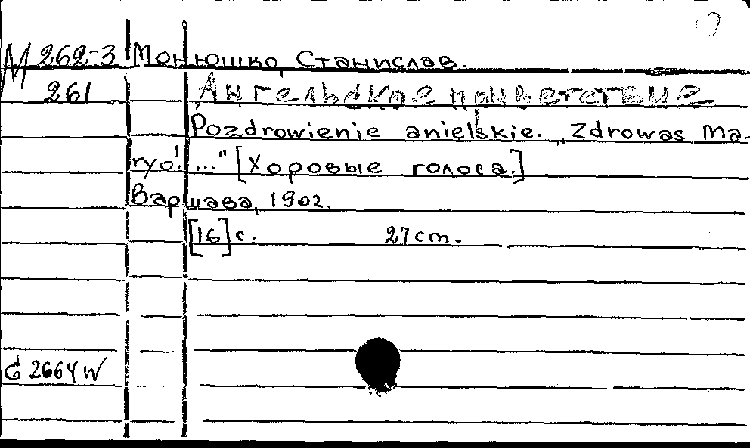 М 262-3 Монюшко, Станислав.
261 Ангельское приветствие
Pozdrowienie anielskie. „Zdrowas Ma-
ryo!..." [Хоровые голоса.]
Варшава, 1902.
[16] с. 27 cm.
G 2664 W